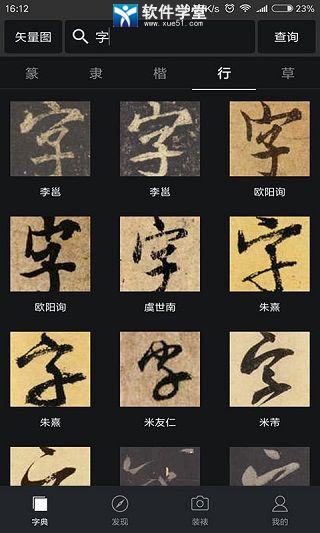 16:12 软件学堂 K/s 23%
www.xue51.com
矢量图 字 查询
篆 隶 楷 行 草
字 字 字
李邕 李邕 欧阳询
字 字 字
欧阳询 虞世南 朱熹
字 字 字
朱熹 米友仁 米芾
字典 发现 装裱 我的